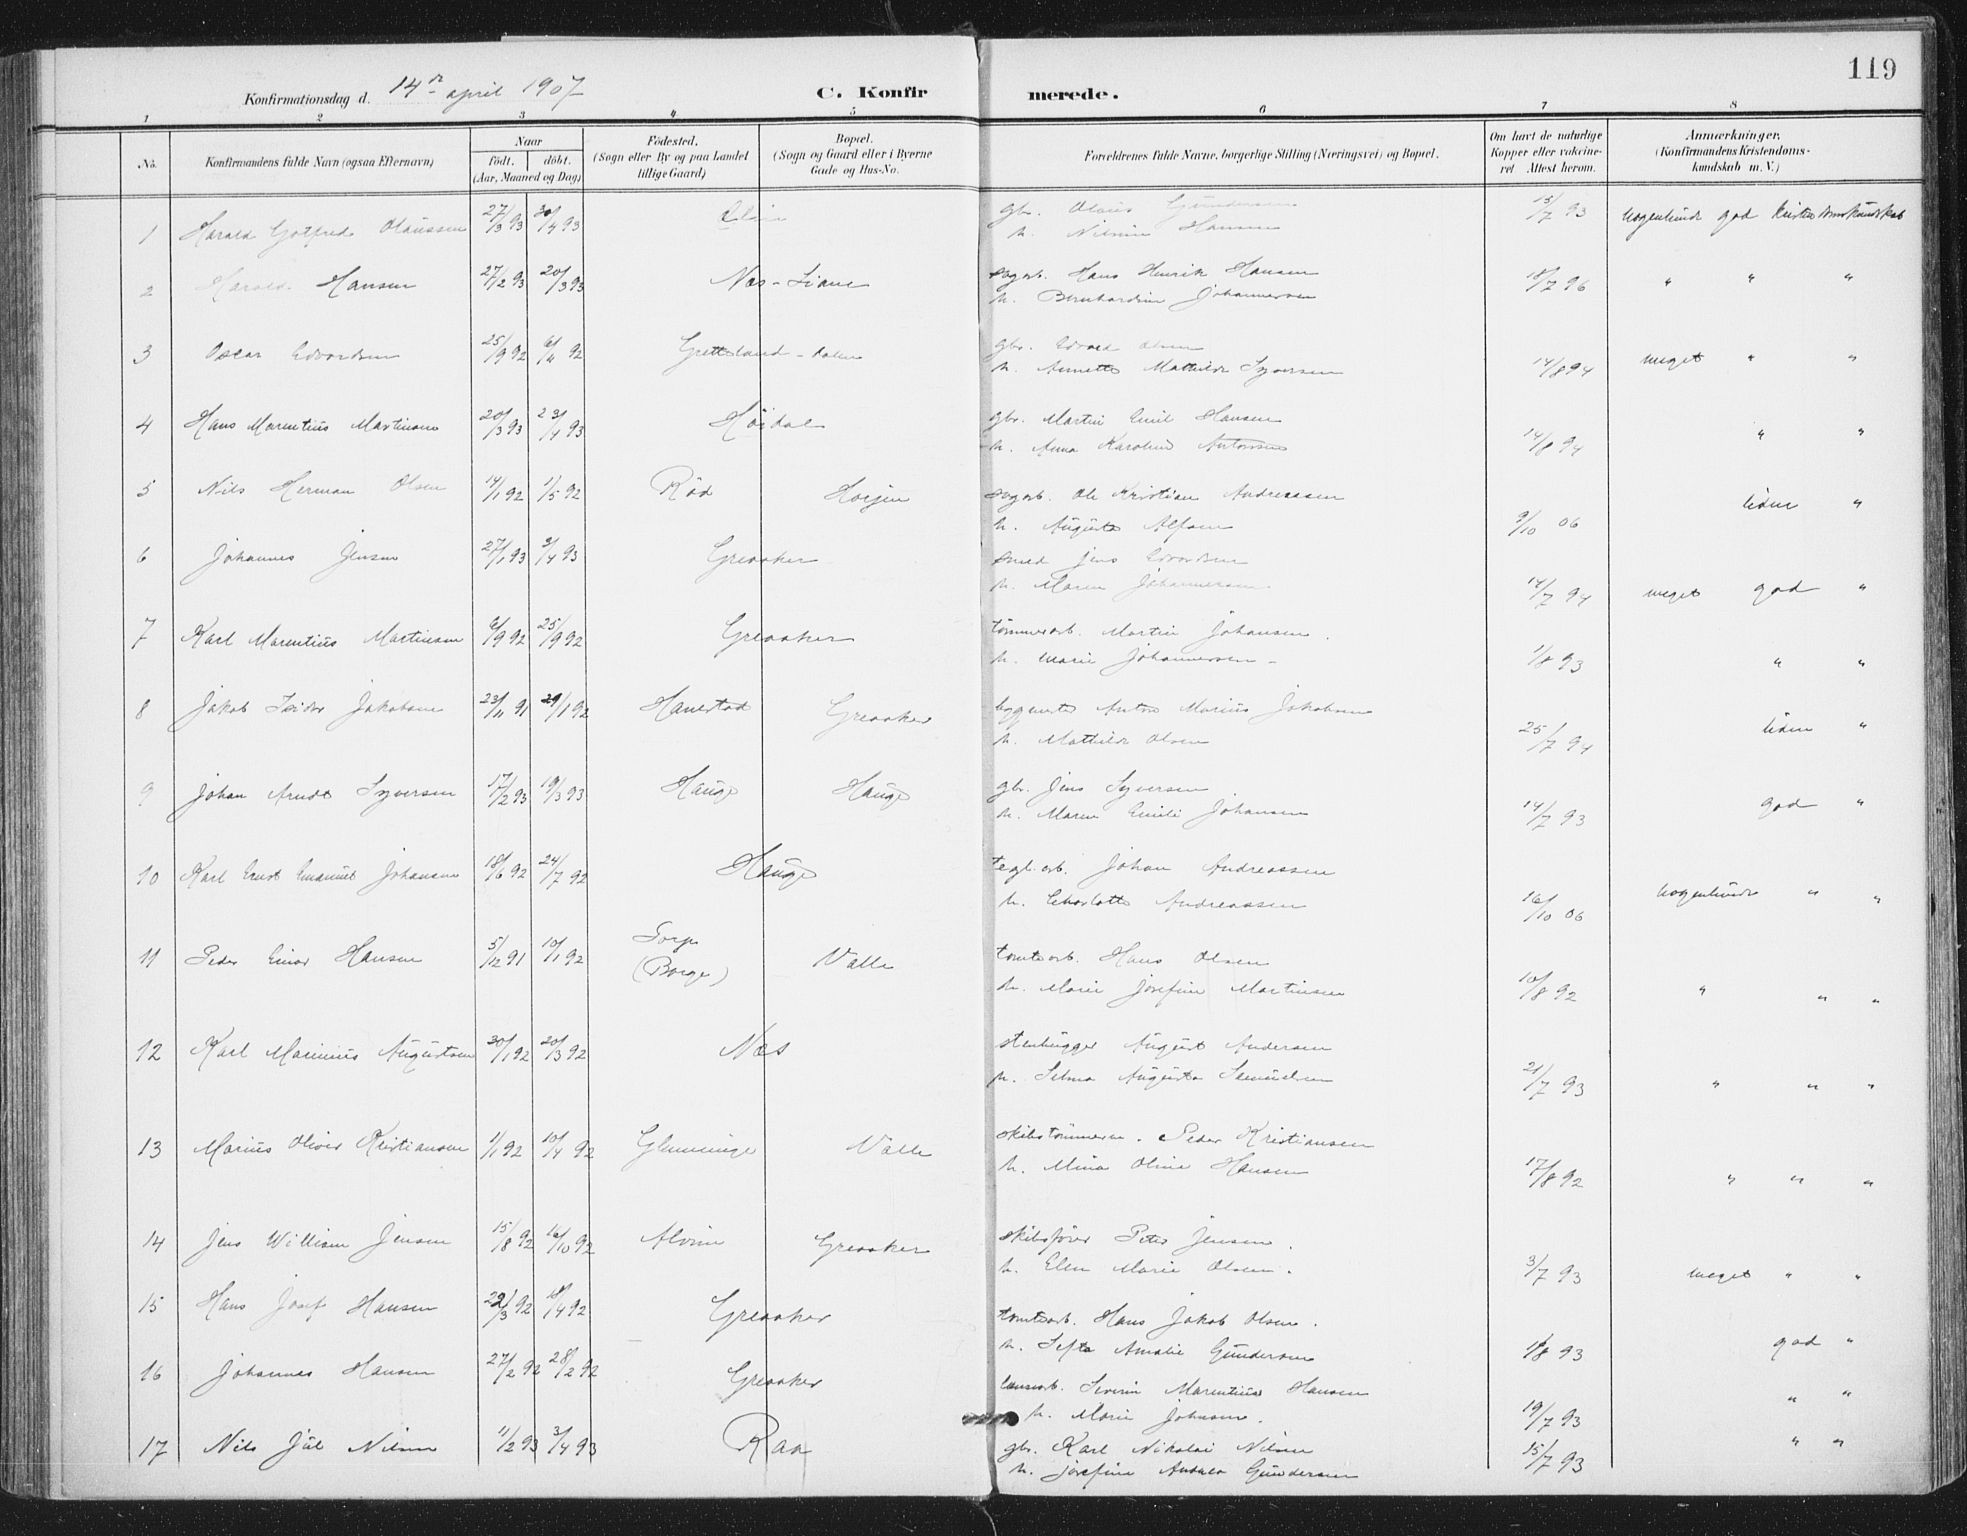 119
Konfirmationsdag d. 14de april 1907
C. Konfirmerede.
1 2 3 4 5 6 7 8
No. Konfirmandens fulde Navn (ogsaa Efternavn) Naar födt. döbt. (Aar, Maaned og Dag) Födested. (Sogn eller By og paa Landet tillige Gaard) Bopæl. (Sogn og Gaard eller i Byerne Gade og Hus-No. Forældrenes fulde Navne, borgerlige Stilling (Næringsvei) og Bopæl. Om havt de naturlige Kopper eller vakcineret Attest herom. Anmærkninger. (Konfirmandens Kristendomskundskab m.V.)
1 Harald Gotfred Olaussen 27/3 93 30/4 93 gbr. Olaus Gundersen 15/7 93 nogenlunde god Kristendomskundskab
h. Nilsine Hansen
2 Harald Hansen 27/2 93 20/3 93 Næs-Liane sagarb. Hans Henrik Hansen 18/7 96 " " "
h. Bernhardine Johannessen
3 Oscar Edvardsen 25/9 92 6/11 92 Grettesland-dalen gbr. Edvard Olsen meget " "
h. Annette Mathilde Syversen 14/8 94
4 Hans Marentius Martinsen 20/3 93 23/4 93 Höidal gbr. Martin Emil Hansen " "
h. Anna Karoline Antonsen 14/8 94
5 Nils Herman Olsen 14/1 92 1/5 92 Röd Horjen sagarb. Ole Kristian Andreassen liden "
h. Auguste Alfsen 9/10 06
6 Johannes Jensen 27/1 93 3/4 93 Greaaker smed Jens Edvardsen
h. Maren Johannessen 14/7 94 meget god "
7 Karl Marentius Martinsen 6/9 92 25/9 92 Greaaker tömmerarb. Martin Johansen.
h. Marie Johannessen - 1/8 93 " "
8 Jakob Isidor Jakobsen 23/11 91 29/1 92 Hanestad Greaaker Anton Marius Jakobsen
h. Mathilde Olsen 25/7 94 liden "
9 Johan Arndt Syversen 17/2 93 19/3 93 Hauge Hauge gbr. Jens Syversen god "
h. Maren Emilie Johansen 14/7 93
10 Karl Ernst Emanuel Johansen 18/6 92 24/7 92 Hauge tegl.arb. Johan Andreassen nogenlunde " "
h. Charlotte Andreassen 16/10 06
11 Peder Einar Hansen 5/12 91 10/1 92 Torp (Borge) Valle tomtearb. Hans Olsen
h. Marie Josefine Martinsen 10/8 92 " " "
12 Karl Marinius Augustsen 30/1 92 20/3 92 Næs stenhugger August Andersen
h. Selma Augusta Samuelsen 21/7 93 " " "
13 Marius Oliver Kristiansen 1/1 92 10/4 92 Glemminge Valle skibstömmerm. Peder Kristiansen
h. Mina Oline Hansen 17/8 92 " " "
14 Jens William Jensen 15/8 92 16/10 92 Alvim Greaaker skibsförer Peter Jensen.
h. Elen Marie Olsen. 3/7 93 meget " "
15 Hans Josef Hansen 22/3 92 18/4 92 Greaaker tomtearb. Hans Jakob Olsen.
h. Amalie Gundersen 1/8 93 god "
16 Johannes Hansen 27/2 92 28/2 92 Greaaker Severin Marentius Hansen " "
h. Marie Johnsen. 19/7 93
17 Nils Juel Nilsen 11/2 93 3/4 93 Raa gbr. Karl Nikolai Nilsen 15/7 93 " "
h. Josefine Andrea Gundersen